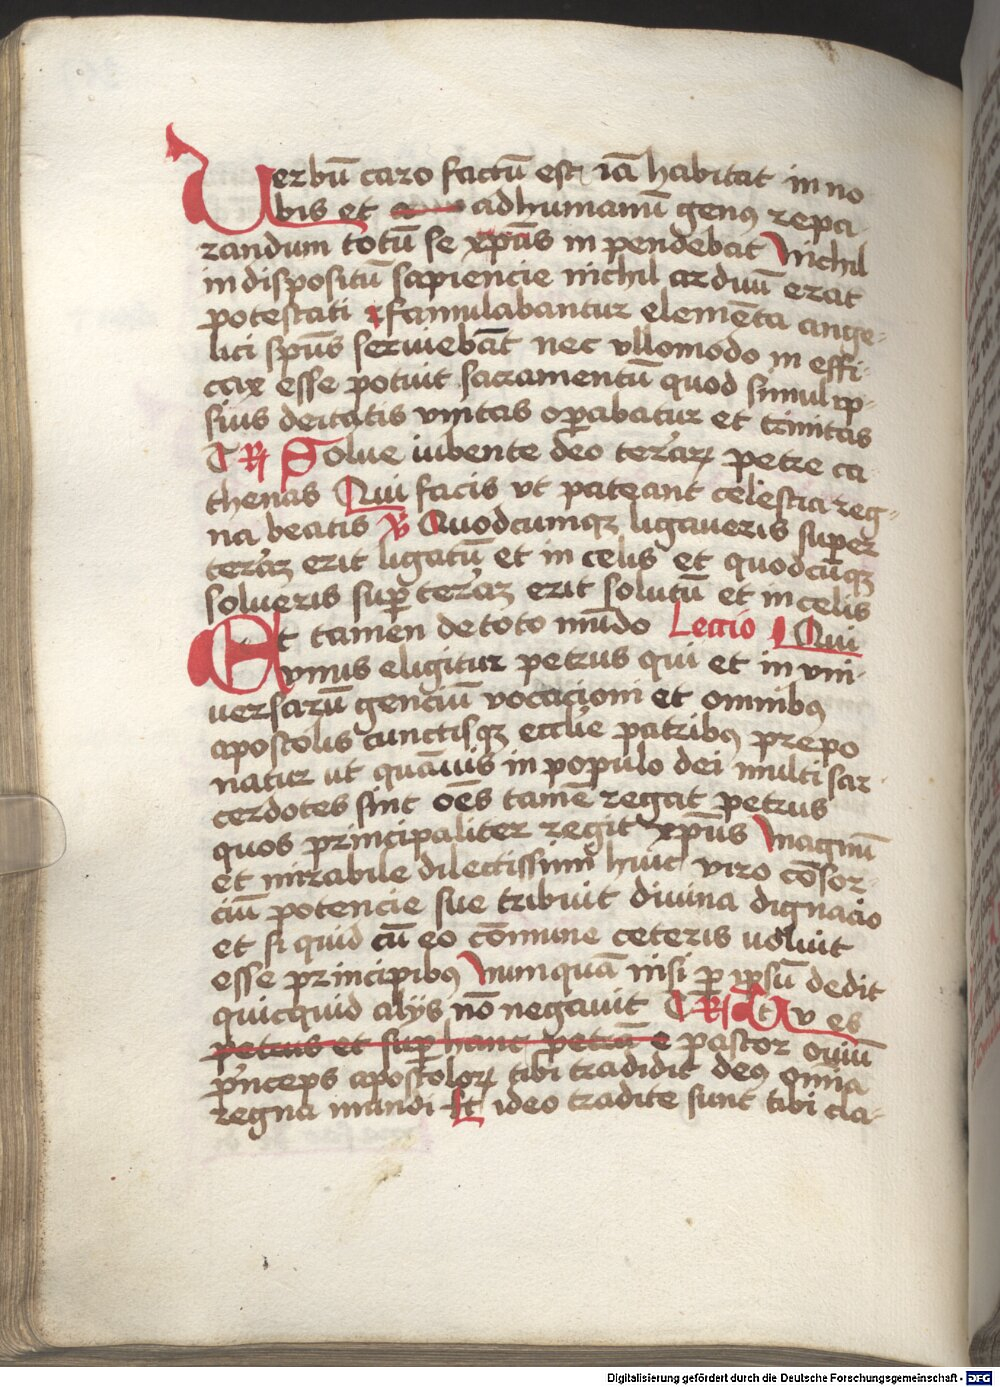 Verbū caro factū est iā habitat in no
bis et ad humanū genꝰ repa
randum totū se xp̄us in pendebat Nichil
in dispositū sapiencie nichil arduū erat
potestati famulabantur elemēta ange-
lici sp̄us seruiebāt nec vllomodo in effi-
cax esse potuit sacramentū quod simul ip-
sius deitatis vnitas oꝑabatur et trinitas
R Solue iubente deo terraꝝ petre ca
thenas Qui facis vt pateant celestia reg-
na beatis V Quodcumqꝫ ligaueris super
terrā erit ligatū et in celis et quodcūqꝫ
solueris suꝑ terrā erit solutū et in celis
Et tamen de toto mūdo Lectio Qui
vnus eligitur petrus qui et in vni-
uersarū genciū vocacioni et omnibꝰ
apostolis cunctisqꝫ ecclīe patribꝰ prepo
natur ut quāuis in populo dei multi sar-
cerdotes sint oēs tamē regat petrus
quos principaliter regit xp̄us Magnū
et mirabile dilectissimi huic viro cōsor-
ciū potencie sue tribuit diuina dignacio
et si quid cū eo cōmune ceteris uoluit
esse principibꝰ Numquā nisi ꝑ ip̄sū dedit
quicquid alijs nō negauit R Tu es
petrus et suꝑ hanc petrā e pastor ouiū
p̄nceps apostoloꝝ tibi tradidit deꝰ om̄ia
regna mundi Et ideo tradite sunt tibi cla-
Digitalisierung gefördert durch die Deutsche Forschungsgemeinschaft - DFG